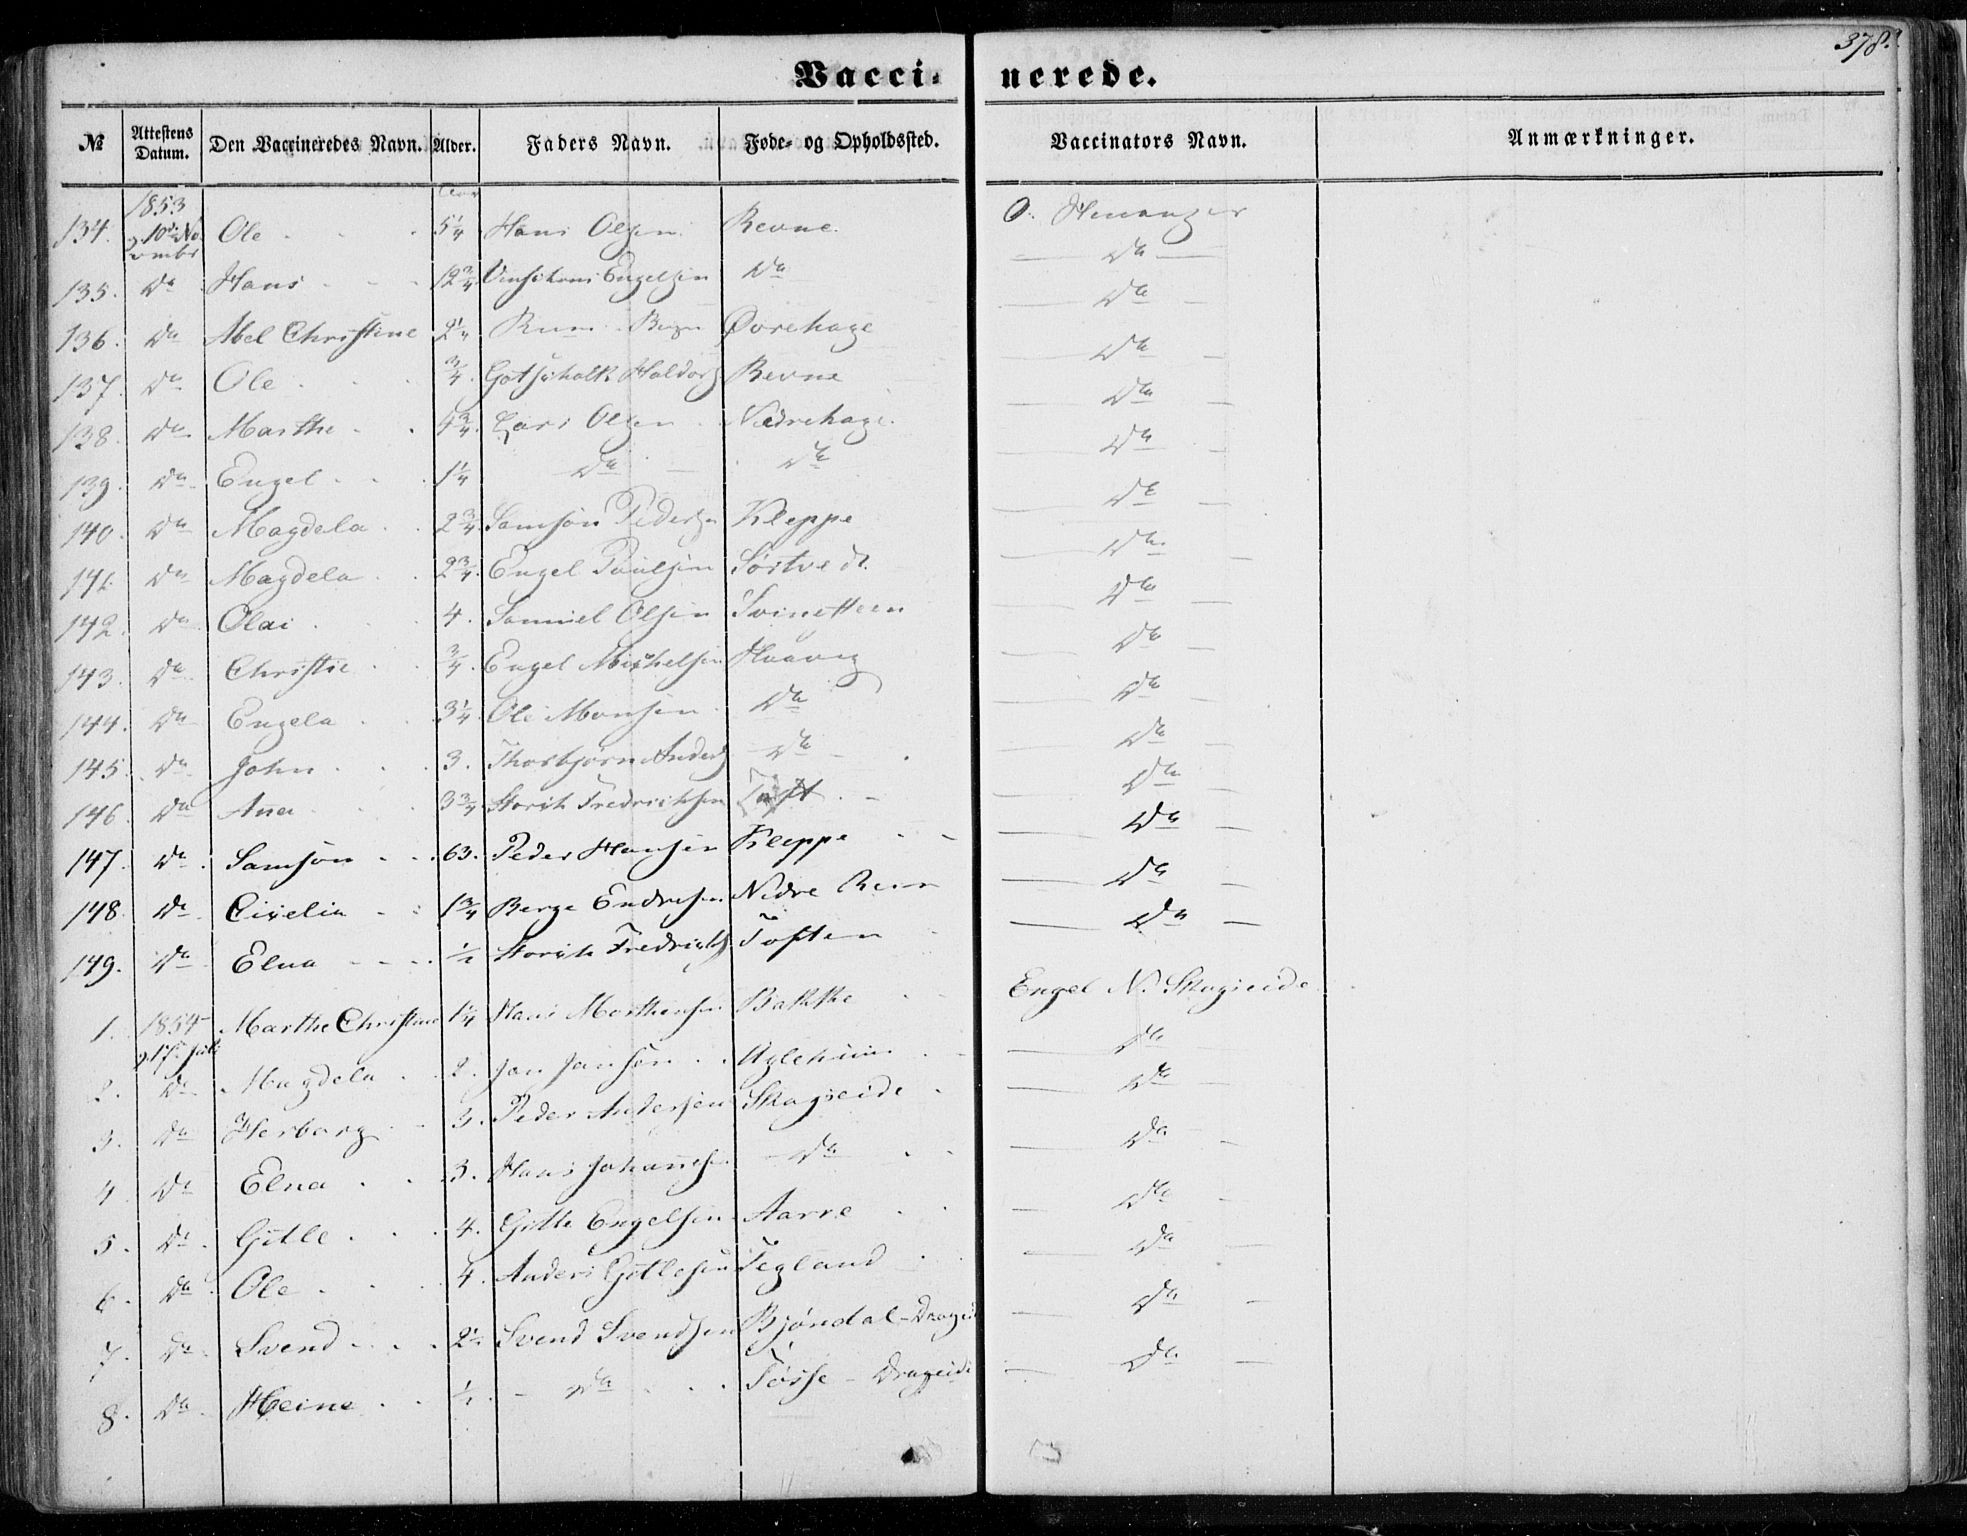 378.
Vacci- nerede.
№ Attestens Datum. Den Vaccineredes Navn. Alder. Faders Navn. Føde- og Opholdssted. Vaccinators Navn. Anmærkninger.
1853 Aar
134. 10de No Ole 5 1/4 Hans Olsen Revne O. Henanger
vmbr
135. Do Hans 12 3/4 Engelsen Do Do
136. Do Abel Christine 2 1/4 Øvrehage Do
137. Do Ole 3/4 Gotschalk Haldors Revne Do
138. Do Marthe 4 3/4 Lars Olsen Nedrehage Do
139. Do Engel 1 1/4 Do Do Do
140. Do Magdela 2 3/4 Samson Peders Kleppe Do
141. Do Magdela 2 3/4 Engel Paulsen Sortvedt Do
142. Do Olai 4. Samuel Olsen Do
143. Do Christie 3/4 Engel Michelsen Haavig Do
144. Do Engela 3 1/4 Ole Monsen Do Do
145. Do John 3. Thorbjørn Anders Do Do
146. Do Ana 3 3/4 Storik Fredriksen Toft Do
147. Do Samson 63. Peder Hansen Kleppe Do
148. Do Cicelia 1 3/4 Berge Endresen Nedre Do
149. Do Elna 1/2 Storik Fredriks Toften Do
1. 1854 Marthe Christine 1 1/4 Hans Morthensen Bakke Engel N. Skagseide
17de Juli
2. Do Magdela 2. Jan Jansen Uglehuus Do
3. Do Herborg 3. Peder Andersen Skagseide Do
4. Do Elna 3. Hans Johannes Do Do
5. Do Gitle 4. Gitle Engelsen Aarre Do
6. Do Ole 4. Anders Gitlesen Tegland Do
7. Do Svend 2 1/2 Svend Svendsen Bjøndal-Drageid Do
8. Do Heine 1/2 Do Tøsse - Drageide Do